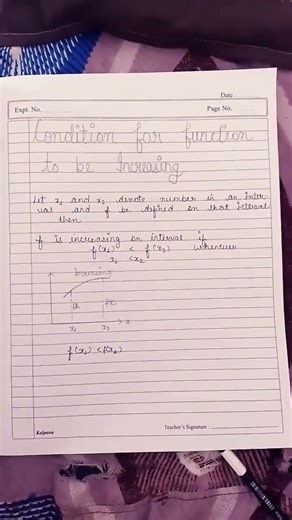 Date
Expt. No.
Page No.
Condition for function
to be Increasing
Let x₁ and x₂ denote number in an inter-
val and f be defined on that interval
then
f is increasing on interval if
f(x₁) < f(x₂) whenever
x₁ < x₂
Increasing
x₁ x₂ x
f(x₁) < f(x₂)
Kalpana
Teacher's Signature :